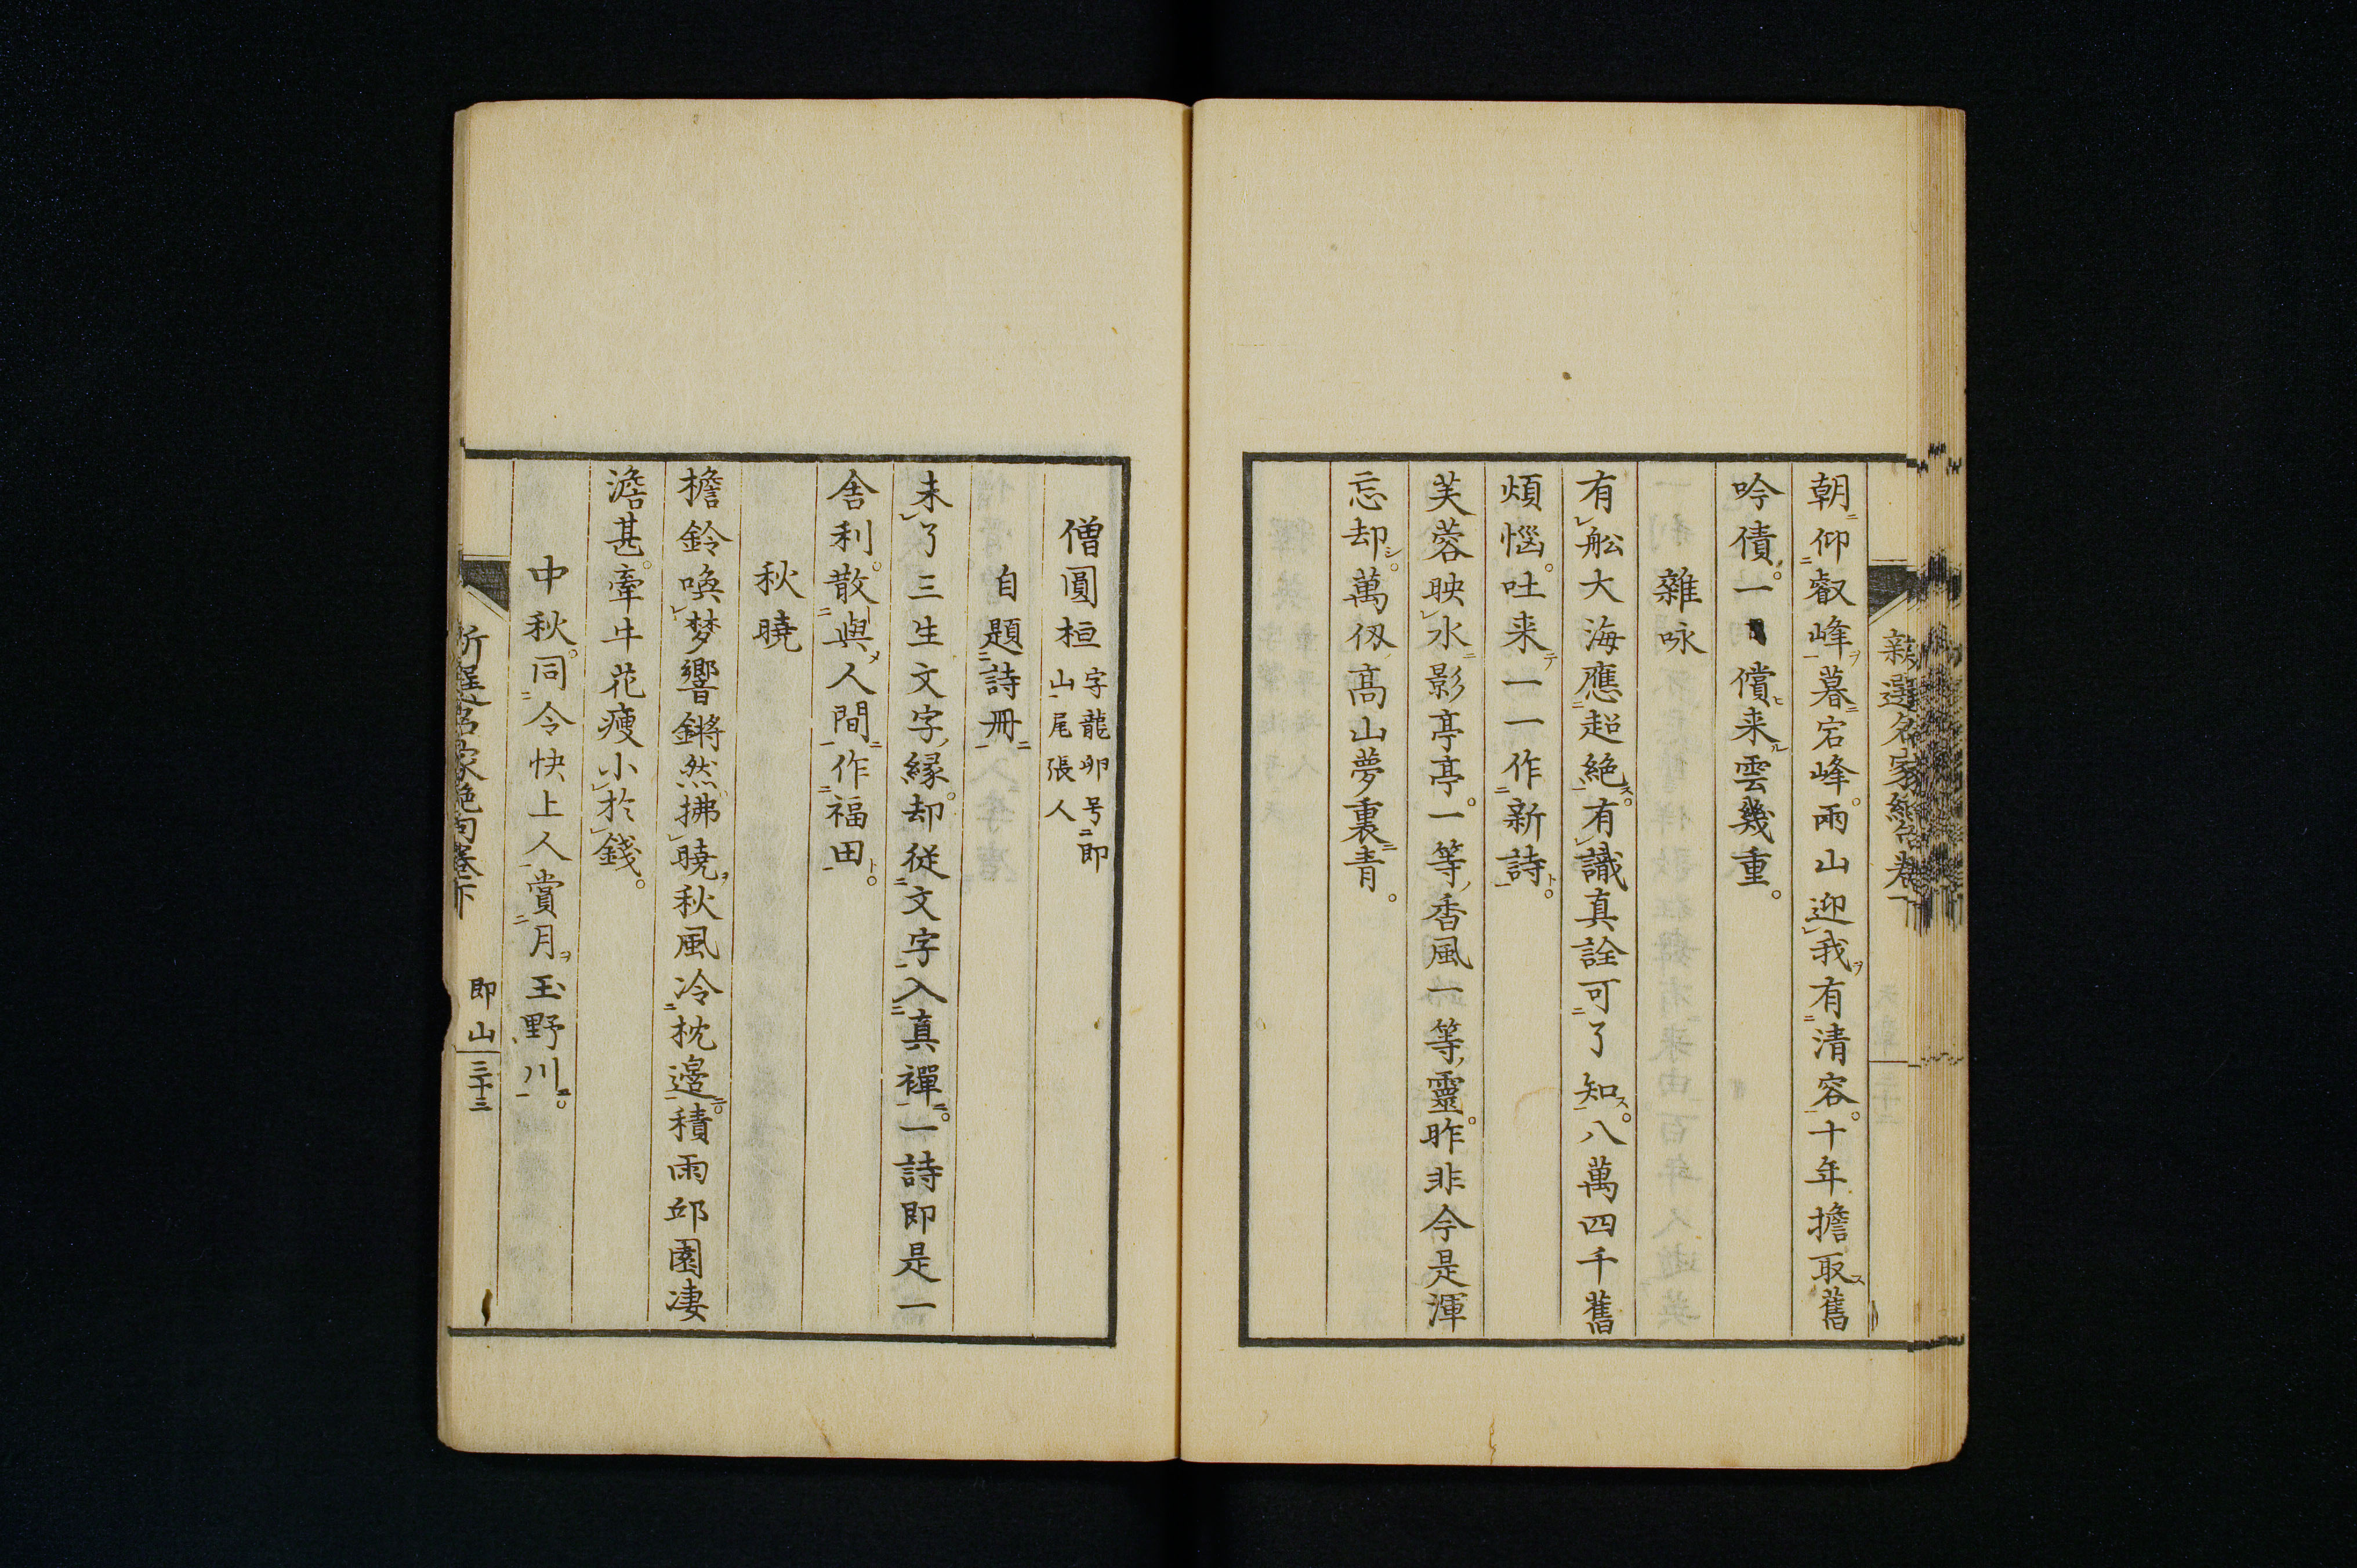 朝仰叡峰暮宕峰兩山迎我有清容十年擔取舊
吟債一償来雲幾重
雜咏
有舩大海應超絶有識真詮可了知八萬四千舊
煩惱吐来一一作新詩
芙蓉映水影亭亭一等香風一等靈昨非今是渾
忘却萬仭高山夢裏青
僧圓桓
字龍卯号即
山尾張人
自題詩册
未了三生文字縁却従文字入真禪一詩即是一
舎利散與人間作福田
秋曉
檐鈴喚梦響鏘然拂曉秋風冷枕邉積雨邱園凄
澹甚牽牛花痩小於錢
中秋同令快上人賞月玉野川
新選名家絶句卷下
即山
三十三